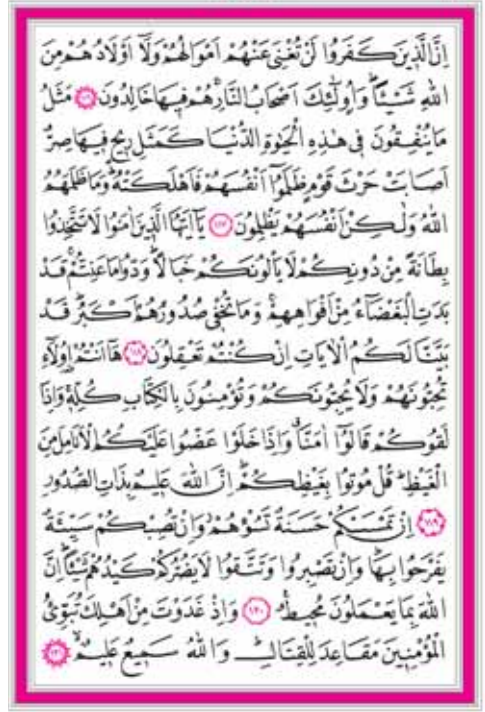 اِنَّ الَّذ۪ينَ كَفَرُوا لَنْ تُغْنِيَ عَنْهُمْ اَمْوَالُهُمْ وَلَٓا اَوْلَادُهُمْ مِنَ
اللّٰهِ شَيْـًٔاۜ وَاُو۬لٰٓئِكَ اَصْحَابُ النَّارِۚ هُمْ ف۪يهَا خَالِدُونَ ﴿١١٦﴾ مَثَلُ
مَا يُنْفِقُونَ ف۪ي هٰذِهِ الْحَيٰوةِ الدُّنْيَا كَمَثَلِ ر۪يحٍ ف۪يهَا صِرٌّ
اَصَابَتْ حَرْثَ قَوْمٍ ظَلَمُٓوا اَنْفُسَهُمْ فَاَهْلَكَتْهُۜ وَمَا ظَلَمَهُمُ
اللّٰهُ وَلٰكِنْ اَنْفُسَهُمْ يَظْلِمُونَ ﴿١١٧﴾ يَٓا اَيُّهَا الَّذ۪ينَ اٰمَنُوا لَا تَتَّخِذُوا
بِطَانَةً مِنْ دُونِكُمْ لَا يَأْلُونَكُمْ خَبَالًاۜ وَدُّوا مَا عَنِتُّمْۚ قَدْ
بَدَتِ الْبَغْضَٓاءُ مِنْ اَفْوَاهِهِمْۚ وَمَا تُخْف۪ي صُدُورُهُمْ اَكْبَرُۜ قَدْ
بَيَّنَّا لَكُمُ الْاٰيَاتِ اِنْ كُنْتُمْ تَعْقِلُونَ ﴿١١٨﴾ هَٓا اَنْتُمْ اُو۬لَٓاءِ
تُحِبُّونَهُمْ وَلَا يُحِبُّونَكُمْ وَتُؤْمِنُونَ بِالْكِتَابِ كُلِّه۪ۚ وَاِذَا
لَقُوكُمْ قَالُٓوا اٰمَنَّاۗ وَاِذَا خَلَوْا عَضُّوا عَلَيْكُمُ الْاَنَامِلَ مِنَ
الْغَيْظِۜ قُلْ مُوتُوا بِغَيْظِكُمْۜ اِنَّ اللّٰهَ عَل۪يمٌ بِذَاتِ الصُّدُورِ
﴿١١٩﴾ اِنْ تَمْسَسْكُمْ حَسَنَةٌ تَسُؤْهُمْۘ وَاِنْ تُصِبْكُمْ سَيِّئَةٌ
يَفْرَحُوا بِهَاۜ وَاِنْ تَصْبِرُوا وَتَتَّقُوا لَا يَضُرُّكُمْ كَيْدُهُمْ شَيْـًٔاۜ اِنَّ
اللّٰهَ بِمَا يَعْمَلُونَ مُح۪يطٌ۟ ﴿١٢٠﴾ وَاِذْ غَدَوْتَ مِنْ اَهْلِكَ تُبَوِّئُ
الْمُؤْمِن۪ينَ مَقَاعِدَ لِلْقِتَالِۜ وَاللّٰهُ سَم۪يعٌ عَل۪يمٌۙ ﴿١٢١﴾